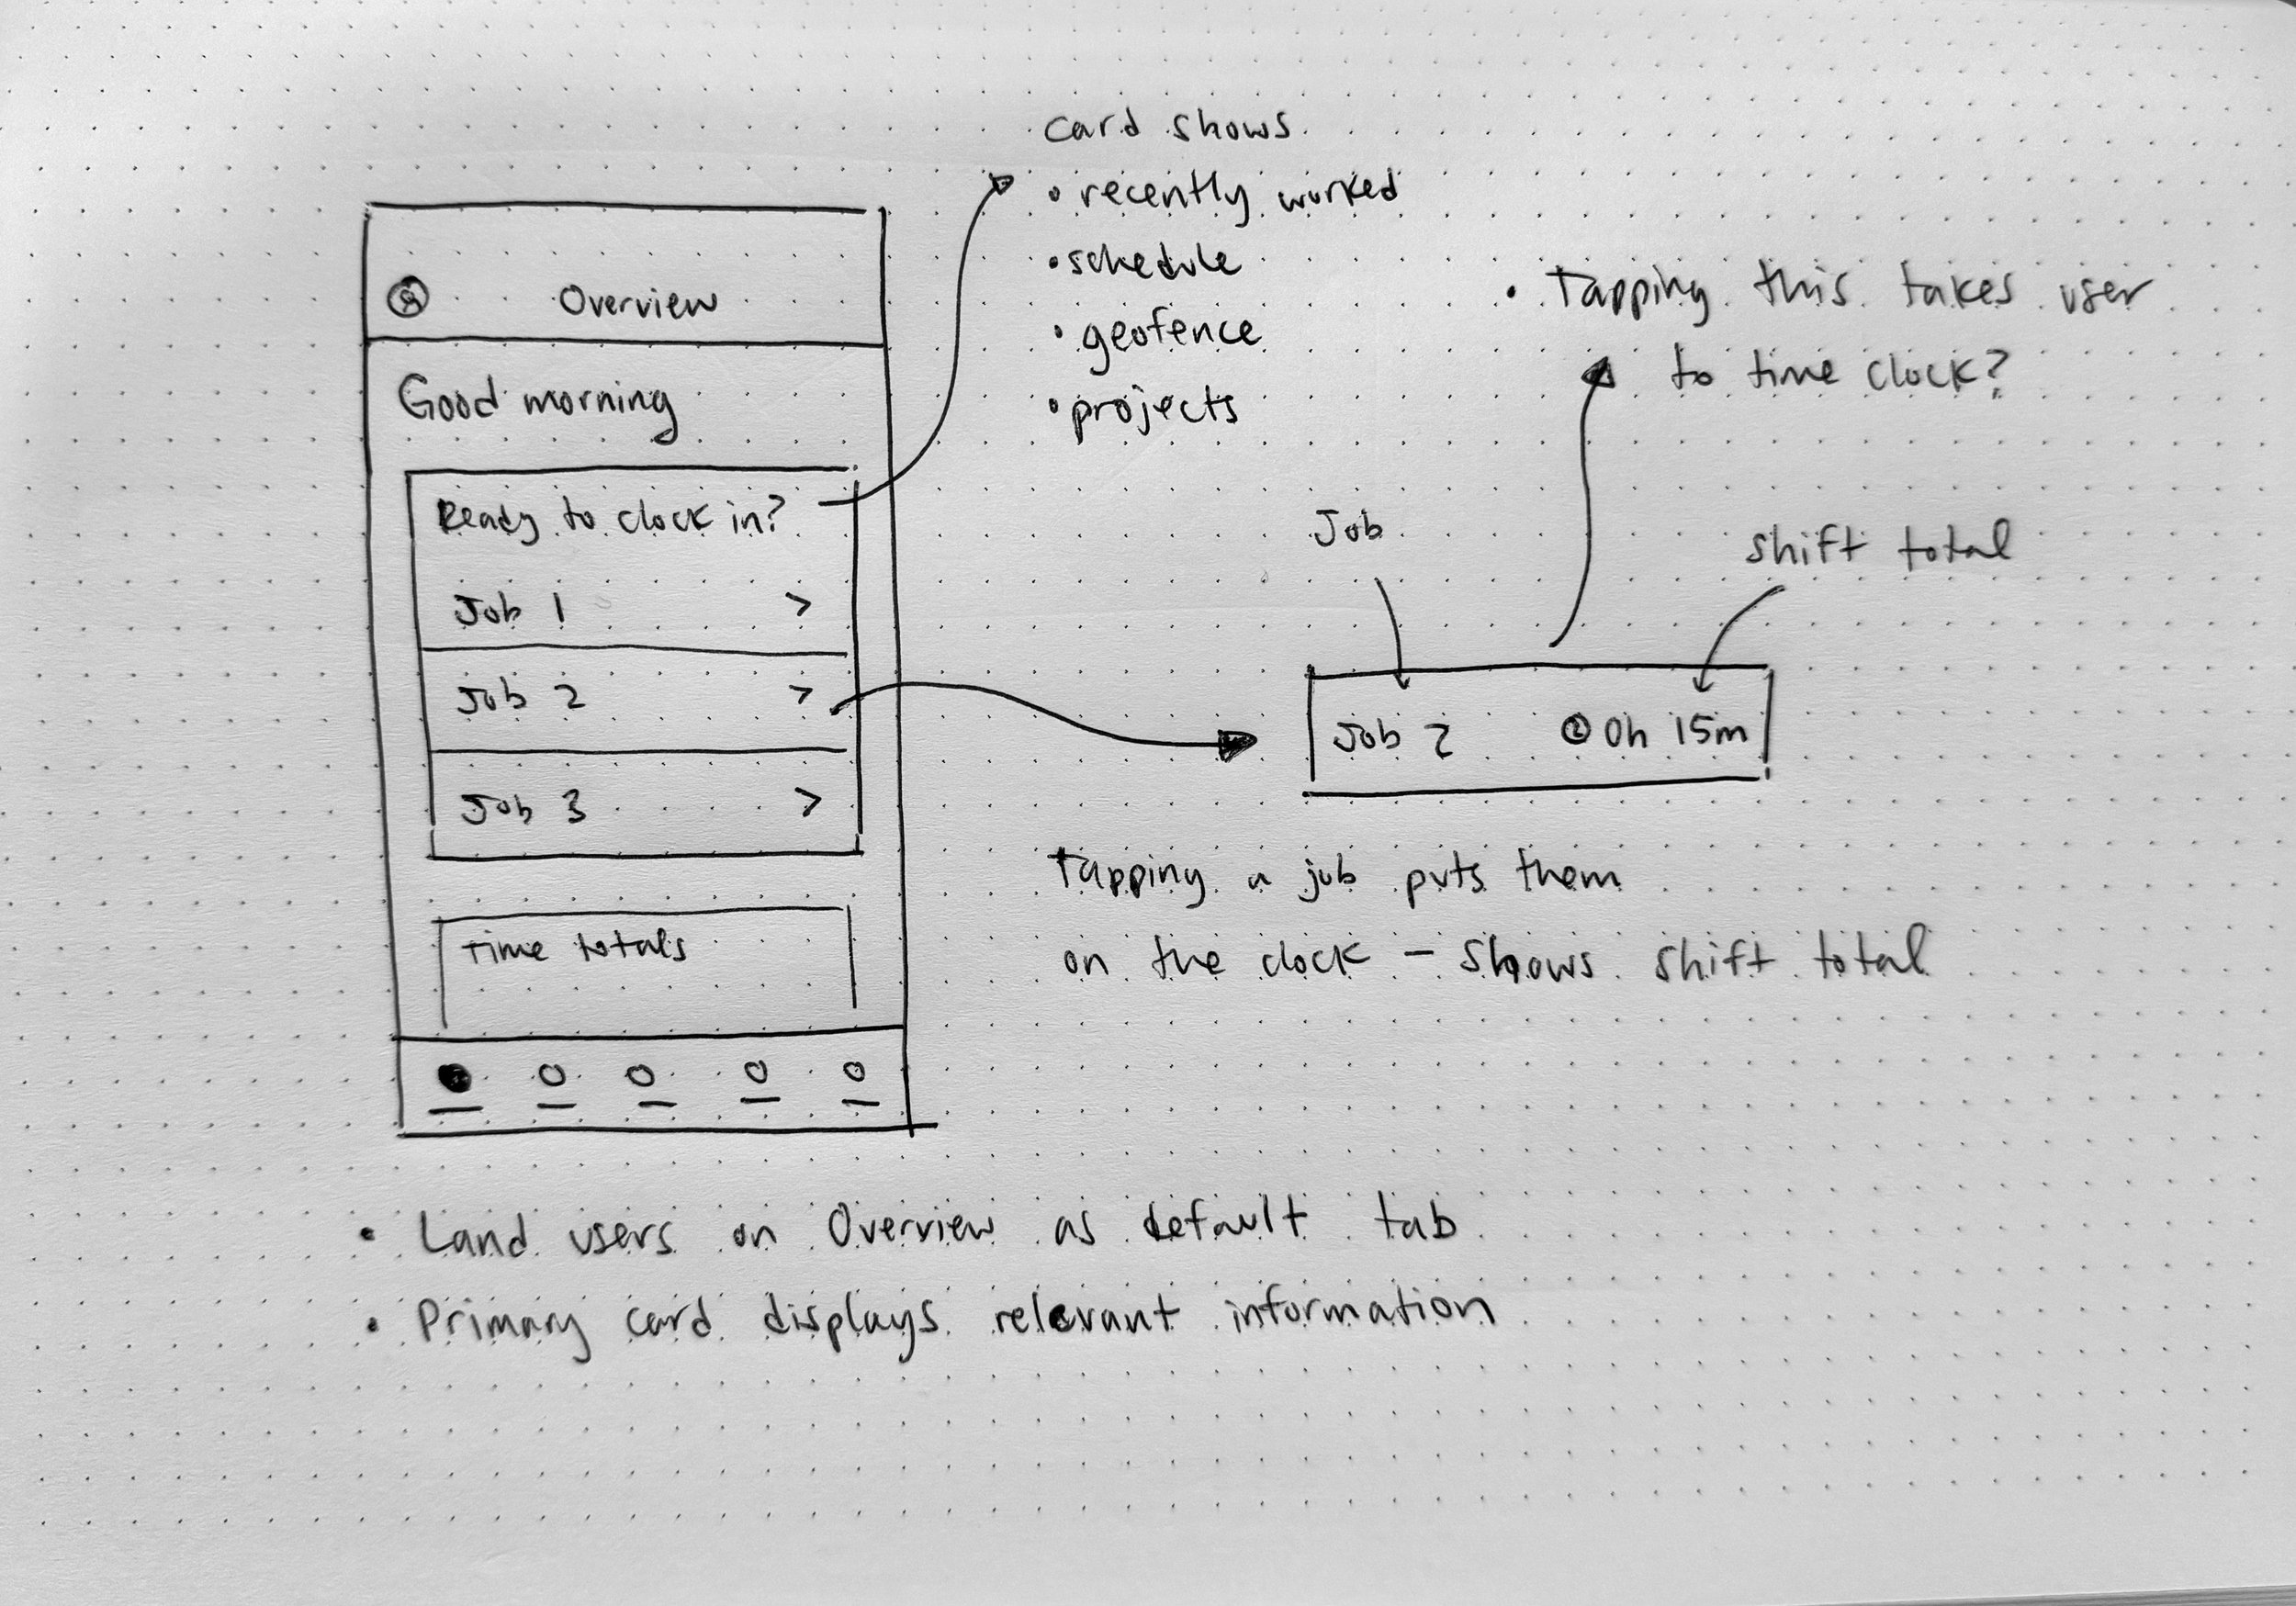 Overview
Good morning
Ready to clock in?
Job 1 >
Job 2 >
Job 3 >
Time totals
card shows
• recently worked
• schedule
• geofence
• projects
• Tapping this takes user
to time clock?
Job
shift total
Job 2 0h 15m
Tapping a job puts them
on the clock – shows shift total
• Land users on Overview as default tab
• Primary card displays relevant information